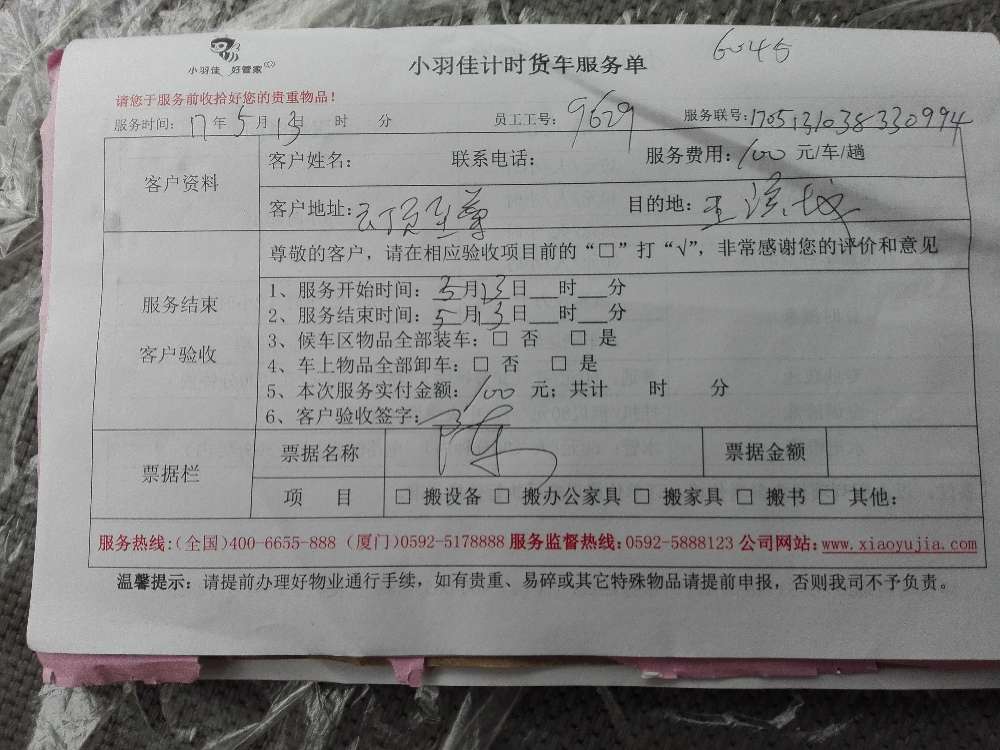 小羽佳 好管家
小羽佳计时货车服务单
请您于服务前收拾好您的贵重物品！
服务时间：17年5月13日 时 分 员工工号：9629 服务联号：1705131038330994
客户资料
客户姓名： 联系电话： 服务费用：100元/车/趟
客户地址：云顶至尊 目的地：
尊敬的客户，请在相应验收项目前的“□”打“√”，非常感谢您的评价和意见
服务结束
客户验收
1、服务开始时间：5月13日__时__分
2、服务结束时间：5月13日__时__分
3、候车区物品全部装车：□ 否 □ 是
4、车上物品全部卸车：□ 否 □ 是
5、本次服务实付金额：100 元；共计 时 分
6、客户验收签字：陈
票据栏
票据名称 票据金额
项 目 □ 搬设备 □ 搬办公家具 □ 搬家具 □ 搬书 □ 其他：
服务热线:(全国)400-6655-888 (厦门)0592-5178888 服务监督热线:0592-5888123 公司网站:www.xiaoyujia.com
温馨提示：请提前办理好物业通行手续，如有贵重、易碎或其它特殊物品请提前申报，否则我司不予负责。